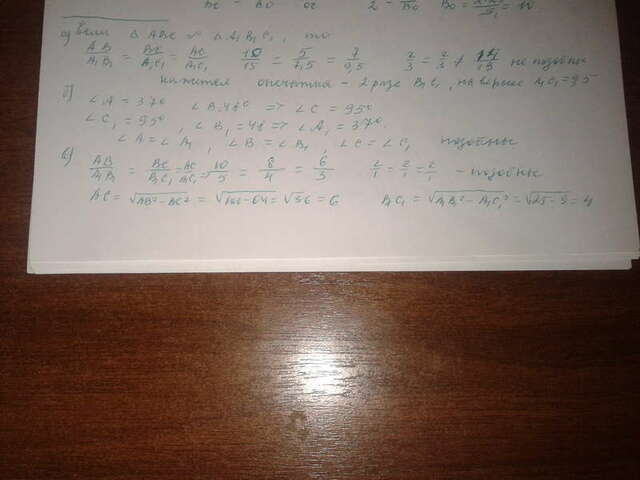 а) если Δ ABC ∾ Δ A₁B₁C₁, то
AB/A₁B₁ = BC/B₁C₁ = AC/A₁C₁ 10/15 = 5/7,5 = 7/9,5 2/3 = 2/3 ≠ 14/19 не подобны
опечатка – 2 раза B₁C₁, на верное A₁C₁ = 9,5
б) ∠A = 37° ∠B = 48° => ∠C = 95°
∠C₁ = 95°, ∠B₁ = 48 => ∠A₁ = 37°
∠A = ∠A₁, ∠B = ∠B₁, ∠C = ∠C₁ подобны
в) AB/A₁B₁ = BC/B₁C₁ = AC/A₁C₁ => 10/5 = 8/4 = 6/3 2/1 = 2/1 = 2/1 – подобны
AC = √AB² – BC² = √100 – 64 = √36 = 6 B₁C₁ = √A₁B₁² – A₁C₁² = √25 – 3 = 4